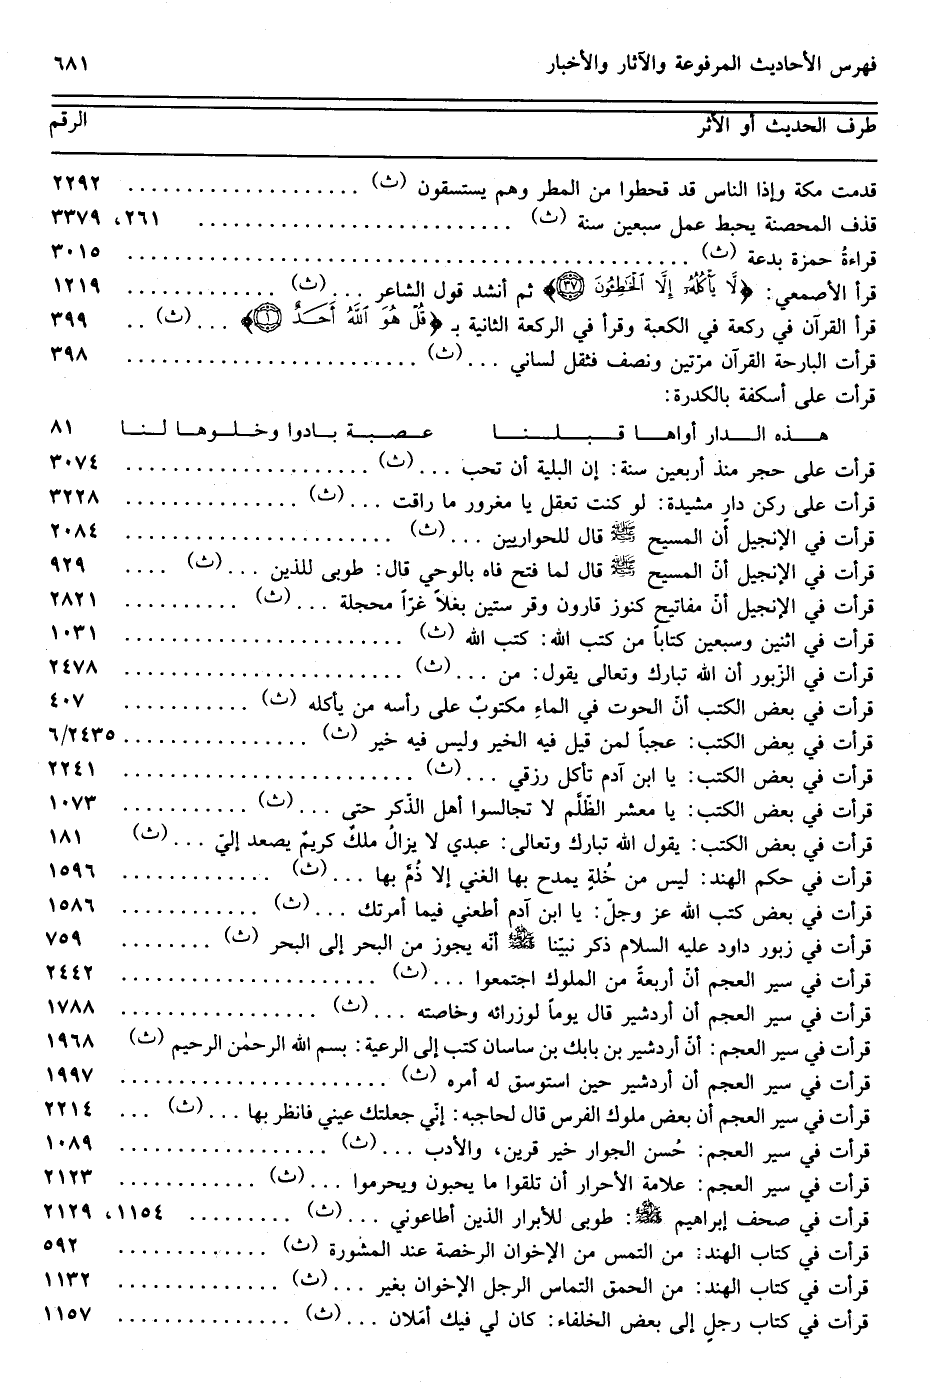 فهرس الأحاديث المرفوعة والآثار والأخبار ٦٨١
طرف الحديث أو الأثر الرقم
قدمت مكة وإذا الناس قد قحطوا من المطر وهم يستسقون (ث) ................... ٢٢٩٢
قذف المحصنة يحبط عمل سبعين سنة (ث) .......................... ٢٦١، ٣٣٧٩
قراءةُ حمزة بدعة (ث) ............................................... ٣٠١٥
قرأ الأصمعي: ﴿لَّا يَأْكُلُهُۥٓ إِلَّا ٱلْخَٰطِـُٔونَ ٣٧﴾ ثم أنشد قول الشاعر ... (ث) ............. ١٢١٩
قرأ القرآن في ركعة في الكعبة وقرأ في الركعة الثانية بـ ﴿قُلْ هُوَ ٱللَّهُ أَحَدٌ ١﴾ ... (ث) .. ٣٩٩
قرأت البارحة القرآن مرّتين ونصف فثقل لساني ... (ث) ........................ ٣٩٨
قرأت على أسكفة بالكدرة:
هـذه الـدار أواهـا قـبـلـنـا عـصبـة بـادوا وخـلـوهـا لـنـا ٨١
قرأت على حجر منذ أربعين سنة: إن البلية أن تحب ... (ث) .................... ٣٠٧٤
قرأت على ركن دارٍ مشيدة: لو كنت تعقل يا مغرور ما راقت ... (ث) ............... ٣٢٢٨
قرأت في الإنجيل أن المسيح ﷺ قال للحواريين ... (ث) ...................... ٢٠٨٤
قرأت في الإنجيل أنّ المسيح ﷺ قال لما فتح فاه بالوحي قال: طوبى للذين ... (ث) .... ٩٢٩
قرأت في الإنجيل أنّ مفاتيح كنوز قارون وقر ستين بغلاً غرّاً محجلة ... (ث) .......... ٢٨٢١
قرأت في اثنين وسبعين كتاباً من كتب الله: كتب الله (ث) ........................ ١٠٣١
قرأت في الزّبور أن الله تبارك وتعالى يقول: من ... (ث) ........................ ٢٤٧٨
قرأت في بعض الكتب أنّ الحوت في الماءِ مكتوبٌ على رأسه من يأكله (ث) ........... ٤٠٧
قرأت في بعض الكتب: عجباً لمن قيل فيه الخير وليس فيه خير (ث) ................ ٦/٢٤٣٥
قرأت في بعض الكتب: يا ابن آدم تأكل رزقي ... (ث) ........................ ٢٢٤١
قرأت في بعض الكتب: يا معشر الظّلَّم لا تجالسوا أهل الذّكر حتى ... (ث) ........... ١٠٧٣
قرأت في بعض الكتب: يقول الله تبارك وتعالى: عبدي لا يزالُ ملكٌ كريمٌ يصعد إليّ ... (ث) ١٨١
قرأت في حكم الهند: ليس من خُلةٍ يمدح بها الغني إلا ذُمَّ بها ... (ث) ............. ١٥٩٦
قرأت في بعض كتب الله عز وجلّ: يا ابن آدم أطعني فيما أمرتك ... (ث) ............ ١٥٨٦
قرأت في زبور داود عليه السلام ذكر نبيّنا ﷺ أنّه يجوز من البحر إلى البحر (ث) ........ ٧٥٩
قرأت في سير العجم أنّ أربعةً من الملوك اجتمعوا ... (ث) ...................... ٢٤٤٢
قرأت في سير العجم أن أردشير قال يوماً لوزرائه وخاصته ... (ث) ................. ١٧٨٨
قرأت في سير العجم: أنّ أردشير بن بابك بن ساسان كتب إلى الرعية: بسم الله الرحمٰن الرحيم (ث) ١٩٦٨
قرأت في سير العجم أن أردشير حين استوسق له أمره (ث) ........................ ١٩٩٧
قرأت في سير العجم أن بعض ملوك الفرس قال لحاجبه: إنّي جعلتك عيني فانظر بها ... (ث) ... ٢٢١٤
قرأت في سير العجم: حُسن الجوار خير قرين، والأدب ... (ث) .................. ١٠٨٩
قرأت في سير العجم: علامة الأحرار أن تلقوا ما يحبون ويحرموا ... (ث) ............ ٢١٢٣
قرأت في صحف إبراهيم ﷺ: طوبى للأبرار الذين أطاعوني ... (ث) ......... ١١٥٤، ٢١٢٩
قرأت في كتاب الهند: من التمس من الإخوان الرخصة عند المشورة (ث) ............. ٥٩٢
قرأت في كتاب الهند: من الحمق التماس الرجل الإخوان بغير ... (ث) .............. ١١٣٢
قرأت في كتاب رجلٍ إلى بعض الخلفاء: كان لي فيك أمَلان ... (ث) ............... ١١٥٧